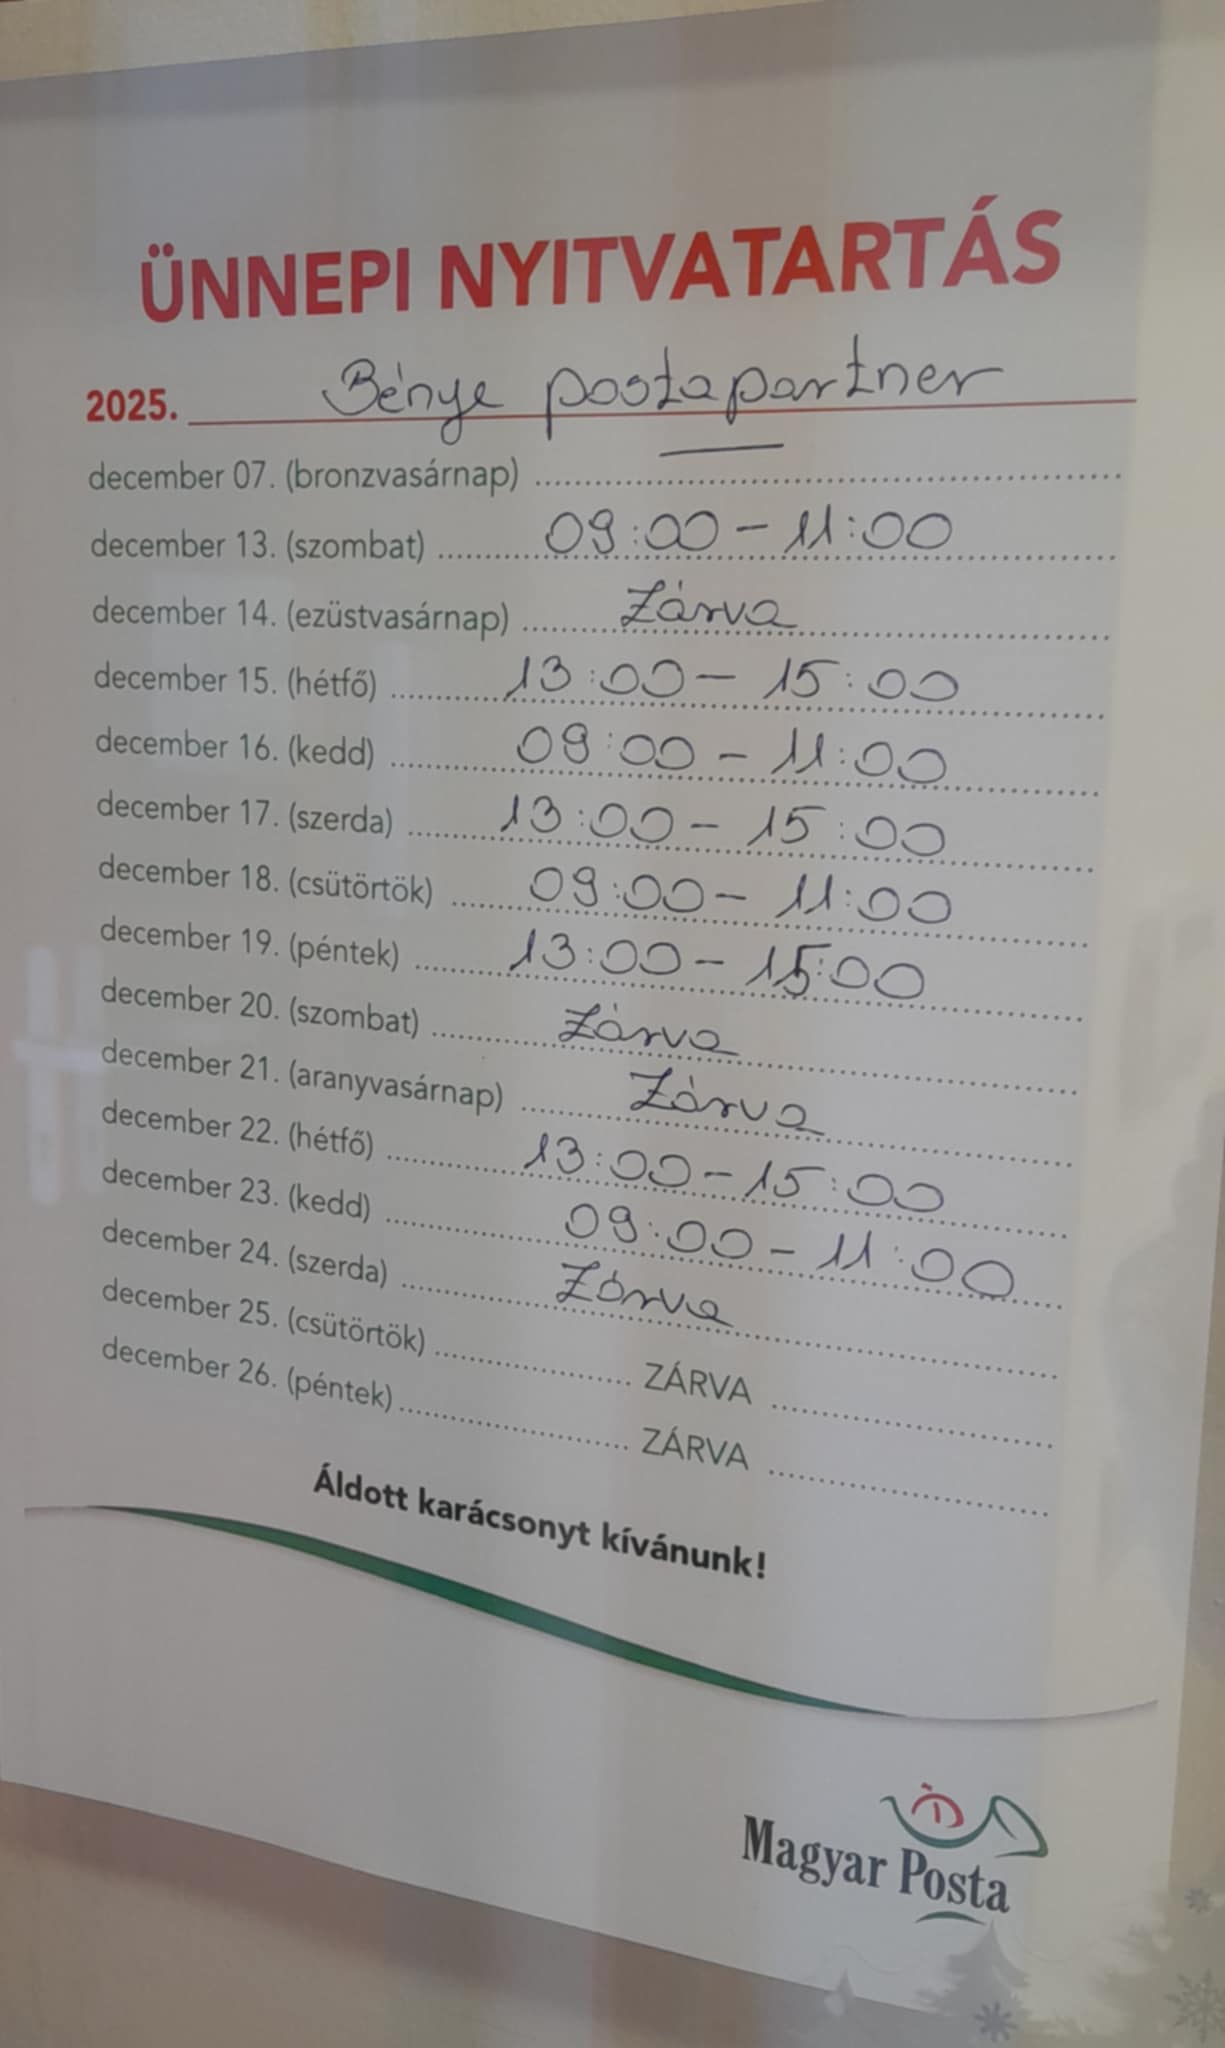 ÜNNEPI NYITVATARTÁS
2025. Bénye postapartner
december 07. (bronzvasárnap)
december 13. (szombat) 09:00 - 11:00
december 14. (ezüstvasárnap) Zárva
december 15. (hétfő) 13:00 - 15:00
december 16. (kedd) 09:00 - 11:00
december 17. (szerda) 13:00 - 15:00
december 18. (csütörtök) 09:00 - 11:00
december 19. (péntek) 13:00 - 15:00
december 20. (szombat) Zárva
december 21. (aranyvasárnap) Zárva
december 22. (hétfő) 13:00 - 15:00
december 23. (kedd) 09:00 - 11:00
december 24. (szerda) Zárva
december 25. (csütörtök) ZÁRVA
december 26. (péntek) ZÁRVA
Áldott karácsonyt kívánunk!
Magyar Posta